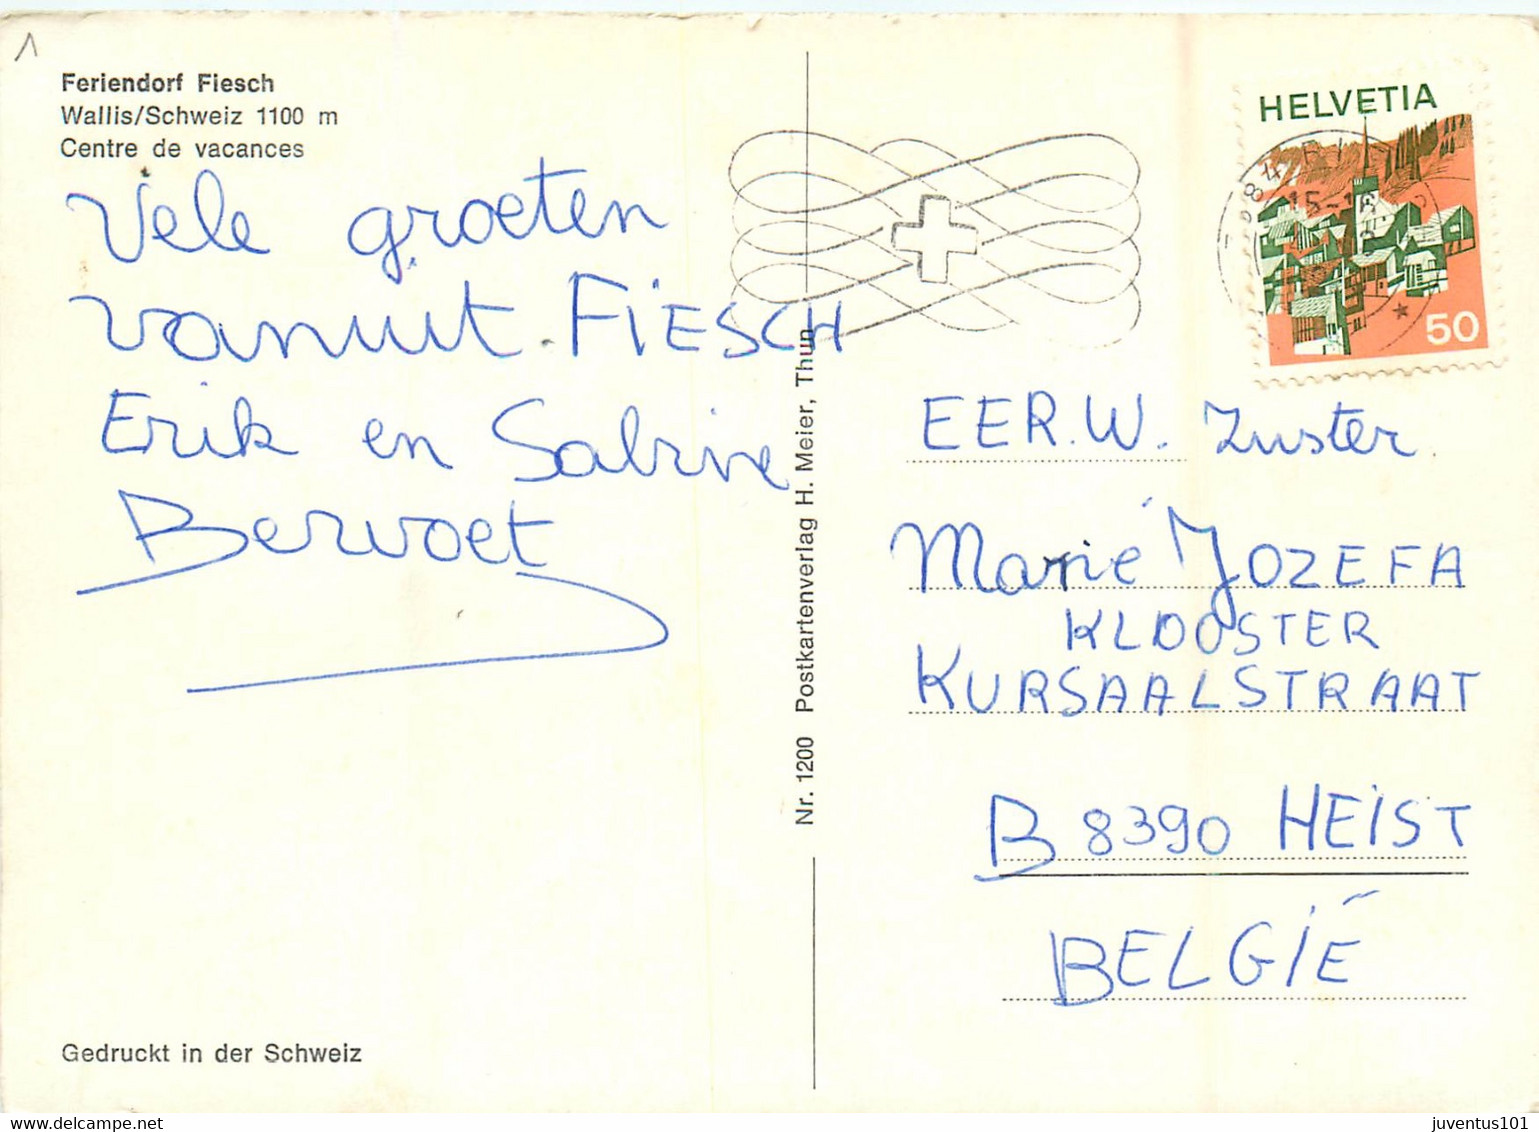 Feriendorf Fiesch
Wallis/Schweiz 1100 m
Centre de vacances
Vele groeten
vanuit FIESCH
Erik en Sabine
Bervoet
Gedruckt in der Schweiz
Nr. 1200 Postkartenverlag H. Meier, Thun
HELVETIA
50
EER. W. Zuster
Marie JOZEFA
KLOOSTER
KURSAALSTRAAT
B 8390 HEIST
BELGIË
juventus101